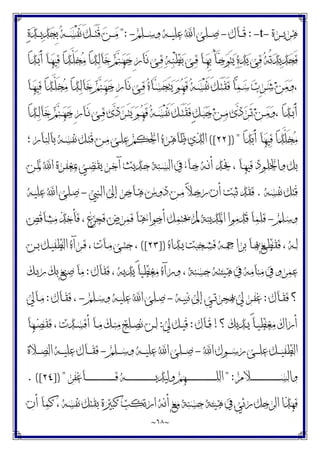 هريرة - ÷ - قال - صلى الله عليه وسلم - : " من قتل نفسه بحديدة
فحديدته في يده يتوجأ بها في بطنه في نار جهنم خالدا مخلدا فيها أبدا
، ومن شرب سما فقتل نفسه فهو يتحساه في نار جهنم خالدا مخلدا فيها
أبدا ، ومن تردى من جبل فقتل نفسه فهو يتردى في نار جهنم خالدا
مخلدا فيها أبدا " (([٢٢])) الذي ظاهره الحكم على من قتل نفسه بالنار ؛
بل والخلود فيها ، نجد أنه جاء في السنة حديث آخر يقتضي مغفرة الله لمن
قتل نفسه . فقد ثبت أن رجلا من دوس هاجر إلى النبي - صلى الله عليه
وسلم - فلما قدموا المدينة استوخمها فمرض فجزع ، فأخذ مشاقص
له ، فقطع بها براجمه فشخبت يداه (([٢٣])) ، حتى مات . فرآه الطفيل بن
عمرو في منامه في هيئة حسنة ، ورآه مغطيا يديه ، فقال : ما صنع بك ربك
؟ فقال : غفر لي بهجرتي إلى نبيه - صلى الله عليه وسلم - . فقال : مالي
أراك مغطيا يديك ؟! قال : قيل لي : لن نصلح منك ما أفسدت ، فقصها
الطفيل على رسول الله - صلى الله عليه وسلم - فقال عليه الصلاة
والسلام : " اللهم وليديه فاغفر " (([٢٤])) .
فهذا الرجل رئي في هيئة حسنة مع أنه ارتكب كبيرة بقتله نفسه ، كما أن
~٦٨~